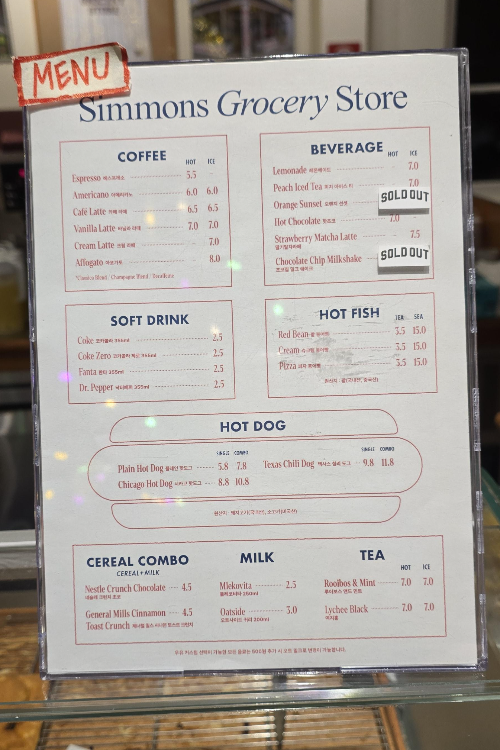 MENU
Simmons Grocery Store
COFFEE
HOT ICE
Espresso 에스프레소 5.5
Americano 아메리카노 6.0 6.0
Café Latte 카페 라떼 6.5 6.5
Vanilla Latte 바닐라 라떼 7.0 7.0
Cream Latte 크림 라떼 7.0
Affogato 아포가토 8.0
BEVERAGE
HOT ICE
Lemonade 레몬에이드 7.0
Peach Iced Tea 피치 아이스 티 7.0
Orange Sunset 오렌지 선셋
SOLD OUT
Hot Chocolate 핫초코 7.0
Strawberry Matcha Latte 7.5
딸기말차라떼
Chocolate Chip Milkshake
SOLD OUT
초코칩 밀크 쉐이크
SOFT DRINK
Coke 코카콜라 355ml 2.5
Coke Zero 코카콜라 제로 355ml 2.5
Fanta 환타 355ml 2.5
Dr. Pepper 닥터페퍼 355ml 2.5
HOT FISH
1EA 5EA
Red Bean 팥 붕어빵 3.5 15.0
Cream 슈크림 붕어빵 3.5 15.0
Pizza 피자 붕어빵 3.5 15.0
HOT DOG
SINGLE COMBO
Plain Hot Dog 플레인 핫도그 5.8 7.8
Chicago Hot Dog 시카고 핫도그 8.8 10.8
SINGLE COMBO
Texas Chili Dog 텍사스 칠리 도그 9.8 11.8
CEREAL COMBO
CEREAL+MILK
Nestle Crunch Chocolate 4.5
네슬레 크런치 초코
General Mills Cinnamon 4.5
Toast Crunch 제너럴 밀스 시나몬 토스트 크런치
MILK
Mlekovita 2.5
믈레코비타 250ml
Oatside 3.0
오트사이드 귀리 200ml
TEA
HOT ICE
Rooibos & Mint 7.0 7.0
루이보스 앤드 민트
Lychee Black 7.0 7.0
리치홍